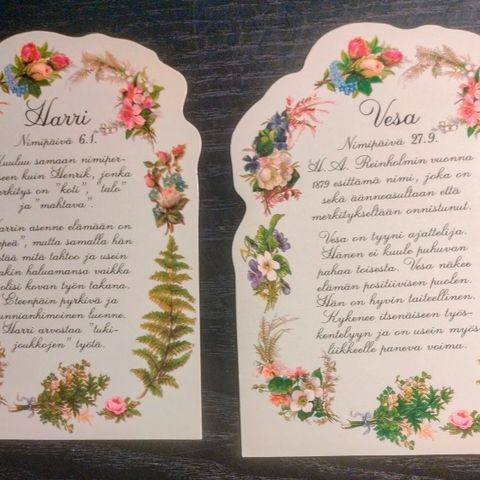 Harri
Nimipäivä 6.1.
Kuuluu samaan nimiper-
seen kuin Henrik, jonka
merkitys on "koti", "talo"
ja "mahtava".
Harrin asenne elämään on
", mutta samalla hän
mitä tahtoo ja usein
haluamansa vaikka
olisi kovan työn takana.
Eteenpäin pyrkivä ja
kunnianhimoinen luonne.
Harri arvostaa "tuki-
joukkojen" työtä.
Vesa
Nimipäivä 27.9.
H. A. Reinholmin vuonna
1879 esittämä nimi, joka on
sekä äänneasultaan että
merkitykseltään onnistunut.
Vesa on tyyni ajattelija.
Hänen ei kuule puhuvan
pahaa toisesta. Vesa näkee
elämän positiivisen puolen.
Hän on hyvin taiteellinen.
Kykenee itsenäiseen työs-
kentelyyn ja on usein myös
liikkeelle paneva voima.